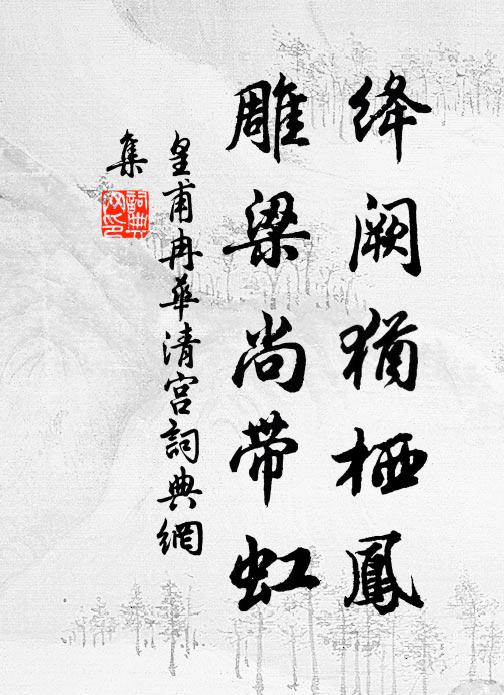 绛阙犹栖鳳
雕梁尚带虹
皇甫冉华清宫詞典網
集
詞典网印